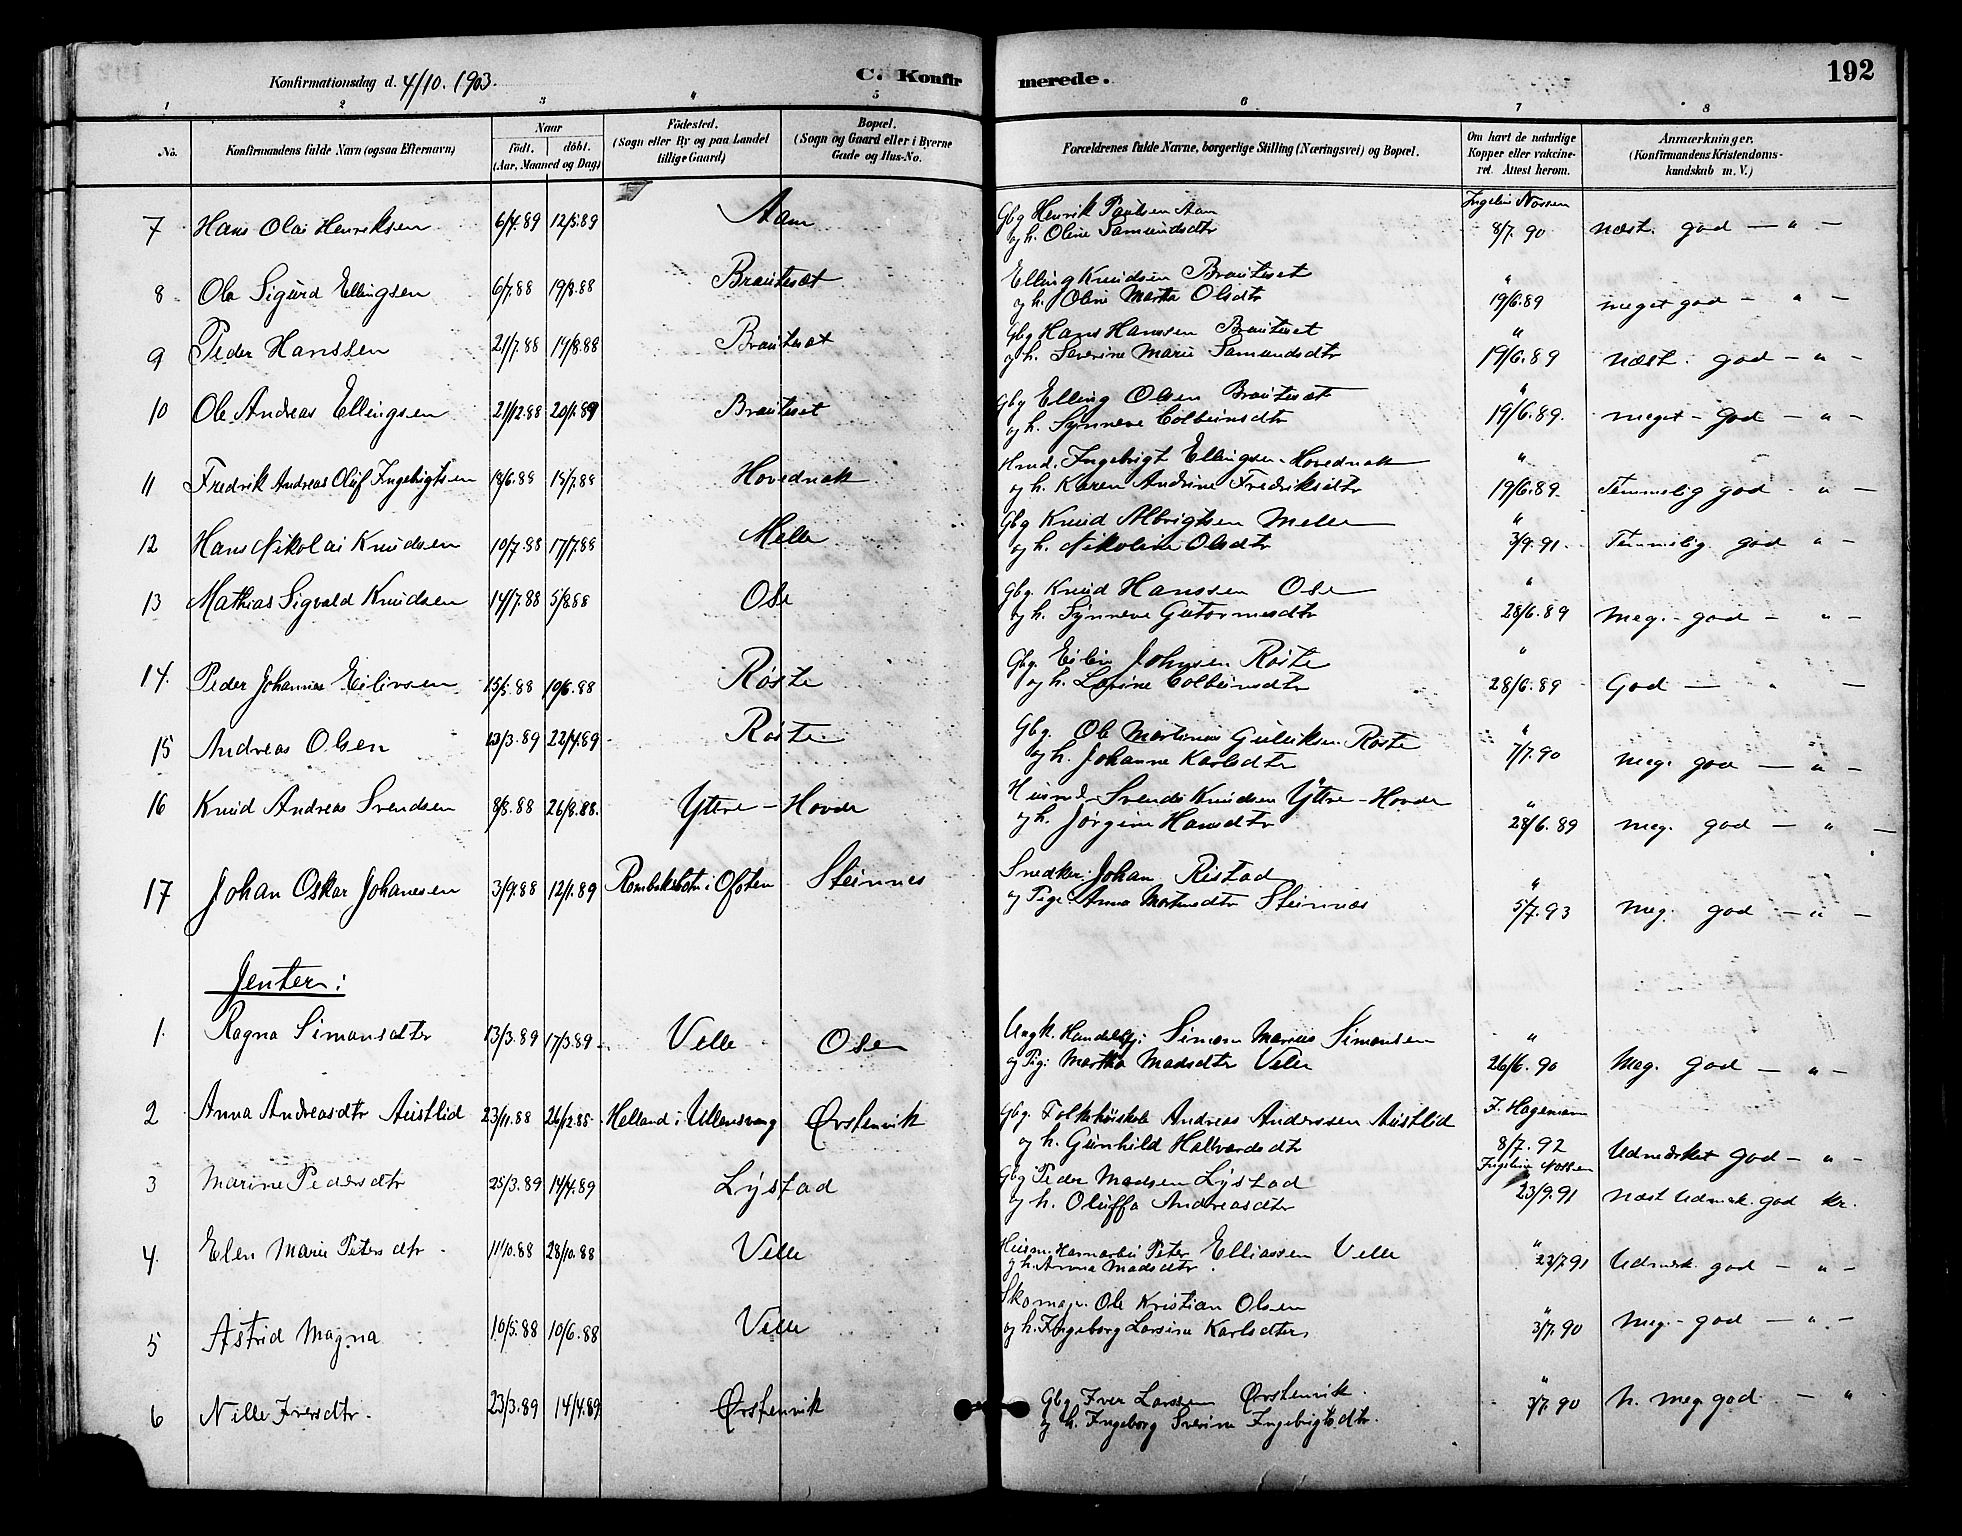 Konfirmationsdag d. 4/10. 1903.
C. Konfirmerede.
192
1 2 3 4 5 6 7 8
No.
Konfirmandens fulde Navn (ogsaa Efternavn)
Naar
født. døbt.
(Aar, Maaned og Dag)
Fødested.
(Sogn eller By og paa Landet tillige Gaard)
Bopæl.
(Sogn og Gaard eller i Byerne Gade og Hus-No.
Forældrenes fulde Navne, borgerlige Stilling (Næringsvei) og Bopæl.
Om havt de naturlige Kopper eller vakcineret. Attest herom.
Anmærkninger.
(Konfirmandens Kristendomskundskab m. V.)
7 Hans Olai Henriksen 6/4.89 12/5.89 Aam Gbg Henrik Paulsen Aam 8/7.90 næst. god — " —
og h. Oline Samundsdtr
8. Ole Sigurd Ellingsen 6/7.88 19/8.88 Brauteset Elling Knudsen Brauteset " 19/6.89 meget god — " —
og h. Oline Martha Olsdtr
9 Peder Hanssen 21/7.88 19/8.88 Brautesæt Gbg Hans Hanssen Brauteset " 19/6.89 næst. god — " —
og h. Severine Marie Samundsdtr
10 Ole Andreas Ellingsen 21/12.88 20/1.89 Brauteset Gbg Elling Olsen Brautesæt " 19/6.89. meget god — " —
og h. Synneve Colbeinsdtr
11 Fredrik Andreas Oluf Ingebrigtsen Hovednak Husmd. Ingebrigt Ellingsen Hovednak " 19/6.89. Temmelig god. " —
og h. Karen Andrine Fredriksdtr
12 Hans Nikolai Knudsen 10/7.88 17/7.88 Melle Gbg Knud Albrigtsen Melle " 3/9.91. Temmelig god " —
og h. Nikoline Olsdtr
13 Mathias Sigvald Knudsen 14/7.88 5/8.88 Ose Gbg. Knud Hanssen Ose " 28/6.89 Meg. god — " —
og h. Synneve Gutormsdtr
14. Peder Johannes Eilivsen 15/5.88 10/6.88 Røste Gbg. Eiliv Johnsen Røste " 28/6.89 God — " —
og h. Lovine Colbeinsdtr
15 Andreas Olsen 23/3.89 22/4.89 Røste Gbg. Ole Martinus Guleiksen Røste " 7/7.90 Meg. god — " —
og h. Johanne Karlsdtr
16 Knud Andreas Svendsen 8/8.88 26/8.88. Yttre-Hovde Husmd. Svend Knudsen Yttre-Hovde " 28/6.89 Meg. god — " —
og h. Jørgine Hansdtr
17 Johan Oskar Johansen 3/9.88 12/1.89 Rombaksbotn i Ofoten Steinnes Snedker Johan Ristad " 5/7.93 Meg. god — " —
og Pige Anna Mortensdtr Steinnes
Jenter:
1. Ragna Simonsdtr 13/3.89 17/3.89 Velle Ose Ungk. Handelsbj: Simon Marius Simonsen " 26/6.90 Mag. god — " —
og Pig: Martha Madsdtr Velle
2 Anna Andreasdtr Austlid 23/11.88 26/12.88 Helland i Ullensvang Ørstenvik Gbg. Folkehøiskole Andreas Anderssen Austlid F. Hageman 8/7.92 Udmærket god — " —
og h. Gunhild Hallvardsdtr
3 Marine Pedersdtr 25/3.89 14/4.89 Lystad Gbg Peder Madsen Lystad 23/9.91 næst Udmærk. god kr.
og h. Oluffa Andreasdtr
4. Elen Marie Petersdtr. 11/10.88 28/10.88 Velle Husm. Havnarbei Peter Elliassen Velle " 23/7.91 Udmærk. god — " —
og h. Anna Madsdtr.
5 Astrid Magna 10/5.88 10/6.88 Velle Skomag. Ole Kristian Olsen " 3/7.90 Meg. god — " —
og h. Ingeborg Lovine Karlsdter
6 Nille Iversdtr. 23/3.89 14/4.89 Ørstenvik Gbg Iver Larssen Ørstenvik. " 3/7.90 n. meg. god — "
og h. Ingeborg Sverine Ingebrigtsdtr.